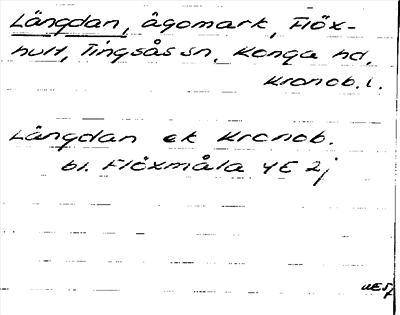 Långdan, ågomark, Flöx-
hult, Tingsås sn, Konga hd,
Kronob. l.
Långdan ek Kronob.
bl. Flöxmåla 4E 2j